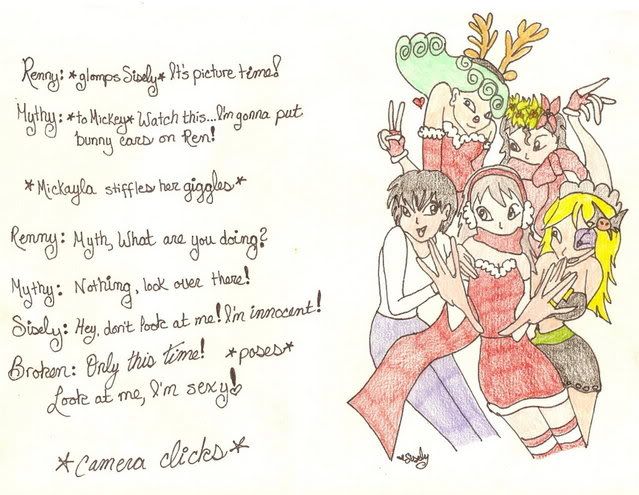 Renny: *glomps Sisely* It's picture time!
Mythy: *to Mickey* Watch this...I'm gonna put
bunny ears on Ren!
*Mickayla stiffles her giggles*
Renny: Myth, What are you doing?
Mythy: Nothing, look over there!
Sisely: Hey, don't look at me! I'm innocent!
Broken: Only this time! *poses*
Look at me, I'm sexy!
*Camera clicks*
*Sisely